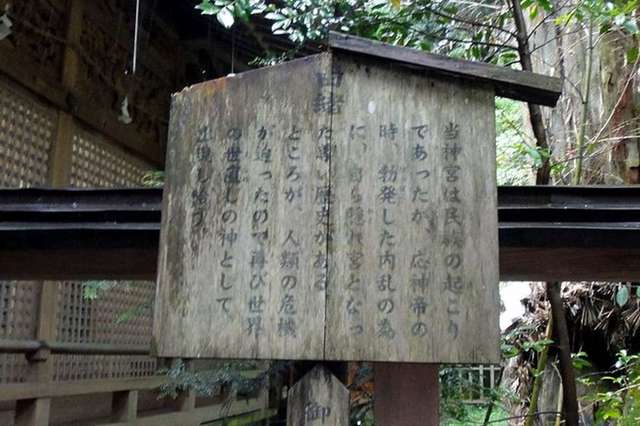 由緒
当神宮は民族の起こり
であったが、応神帝の
時、勃発した内乱の為
に、自ら隠れ宮となっ
た尊い歴史がある
ところが、人類の危機
が迫ったので再び世界
の世直しの神として
出現し始めた
御